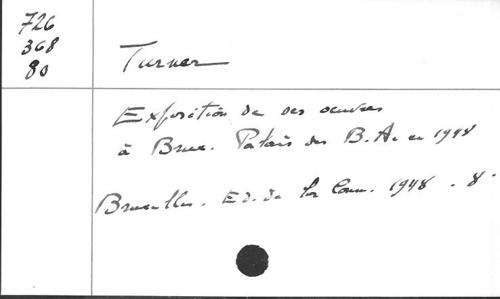 726
368
80
Turner
Exposition de ses oeuvres
à Brux. Palais des B.A. en 1948
Bruxelles. Ed. de la Conn. 1948. 8°